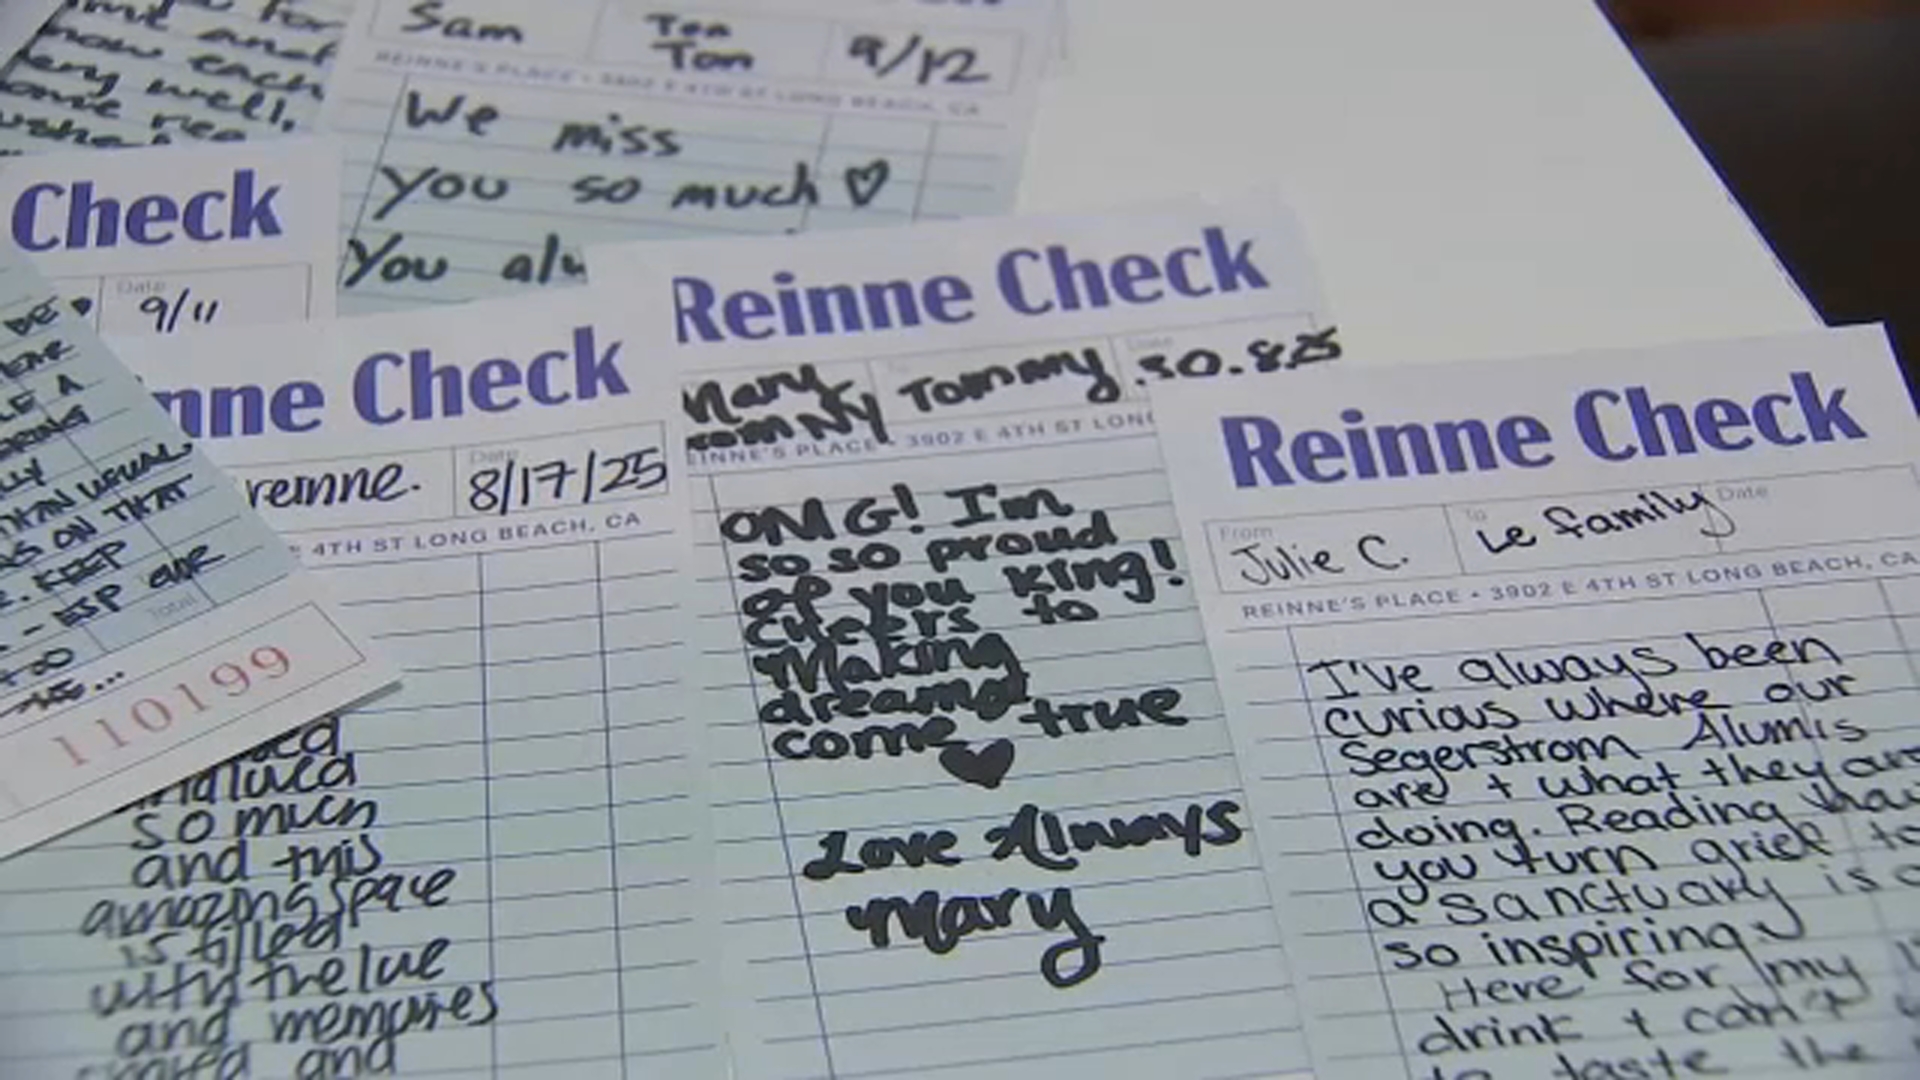 now each
very well,
Sam
Ton
Ton
9/12
REINNE'S PLACE • 3902 E 4TH ST LONG BEACH, CA
We miss
you so much ♡
You alw
Check
Date
9/11
A
THAN USUAL.
AS ON THAT
KEEP
- ESP OUR
Total
TOO
110199
nne Check
reinne.
Date
8/17/25
E 4TH ST LONG BEACH, CA
so much
and this
amazing space
is filled
with the love
and memories
and
Reinne Check
Mary
Tommy
30.8.25
REINNE'S PLACE • 3902 E 4TH ST LONG
OMG! I'm
so so proud
of you king!
cheers to
Making
dreams
come true
♥
Love Always
Mary
Reinne Check
From
Julie C.
To
Le family
Date
REINNE'S PLACE • 3902 E 4TH ST LONG BEACH, CA
I've always been
curious where our
Segerstrom Alumis
are + what they are
doing. Reading how
you turn grief to
a sanctuary is
so inspiring.
Here for my
drink + can't
to taste the